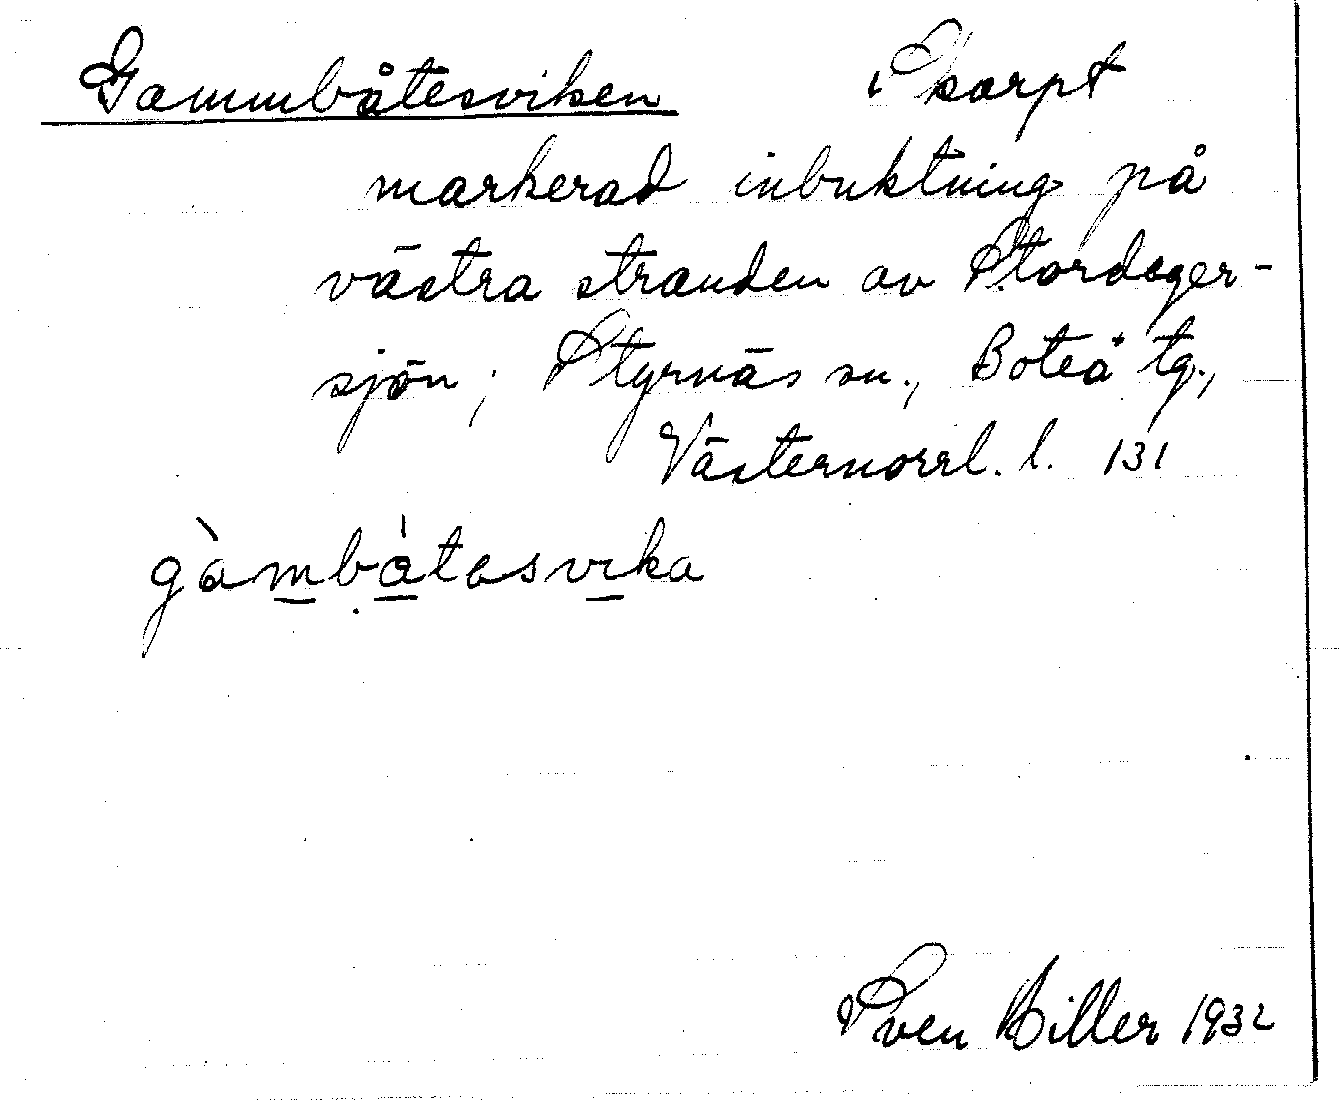 Gammbåtesviken Skarpt
markerad inbuktning på
västra stranden av Stordager-
sjön; Styrnäs sn., Boteå tg.,
Västernorrl. l. 131
gàmbátasvika
Sven Hiller 1932